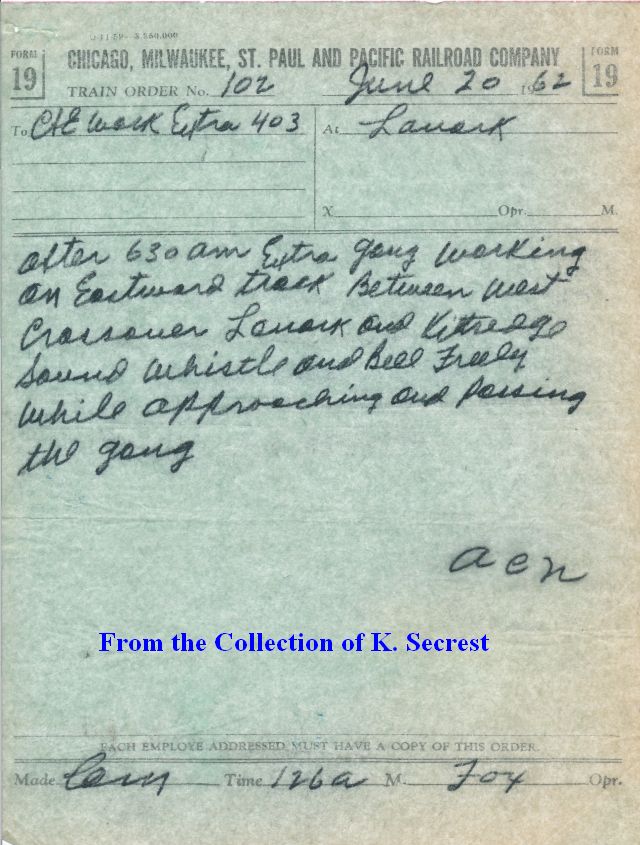 U 11-59- 3,560,000
FORM 19
CHICAGO, MILWAUKEE, ST. PAUL AND PACIFIC RAILROAD COMPANY
FORM 19
TRAIN ORDER No. 102 June 20 1962
To C&E Work Extra 403 At Lanark
X Opr. M.
After 630 am Extra gang working
on Eastward track Between West
Crossover Lanark and Kittredge
Sound Whistle and Bell Freely
While approaching and Passing
the gang
A C N
From the Collection of K. Secrest
EACH EMPLOYE ADDRESSED MUST HAVE A COPY OF THIS ORDER.
Made Com Time 126a M. Fox Opr.